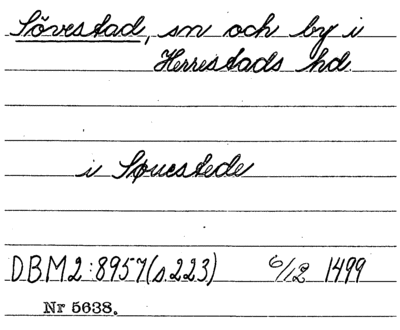 Sövestad, sn och by i
Herrestads hd.
i Søuestede
DBM2:8957(s.223) 6/12 1499
Nr 5638.